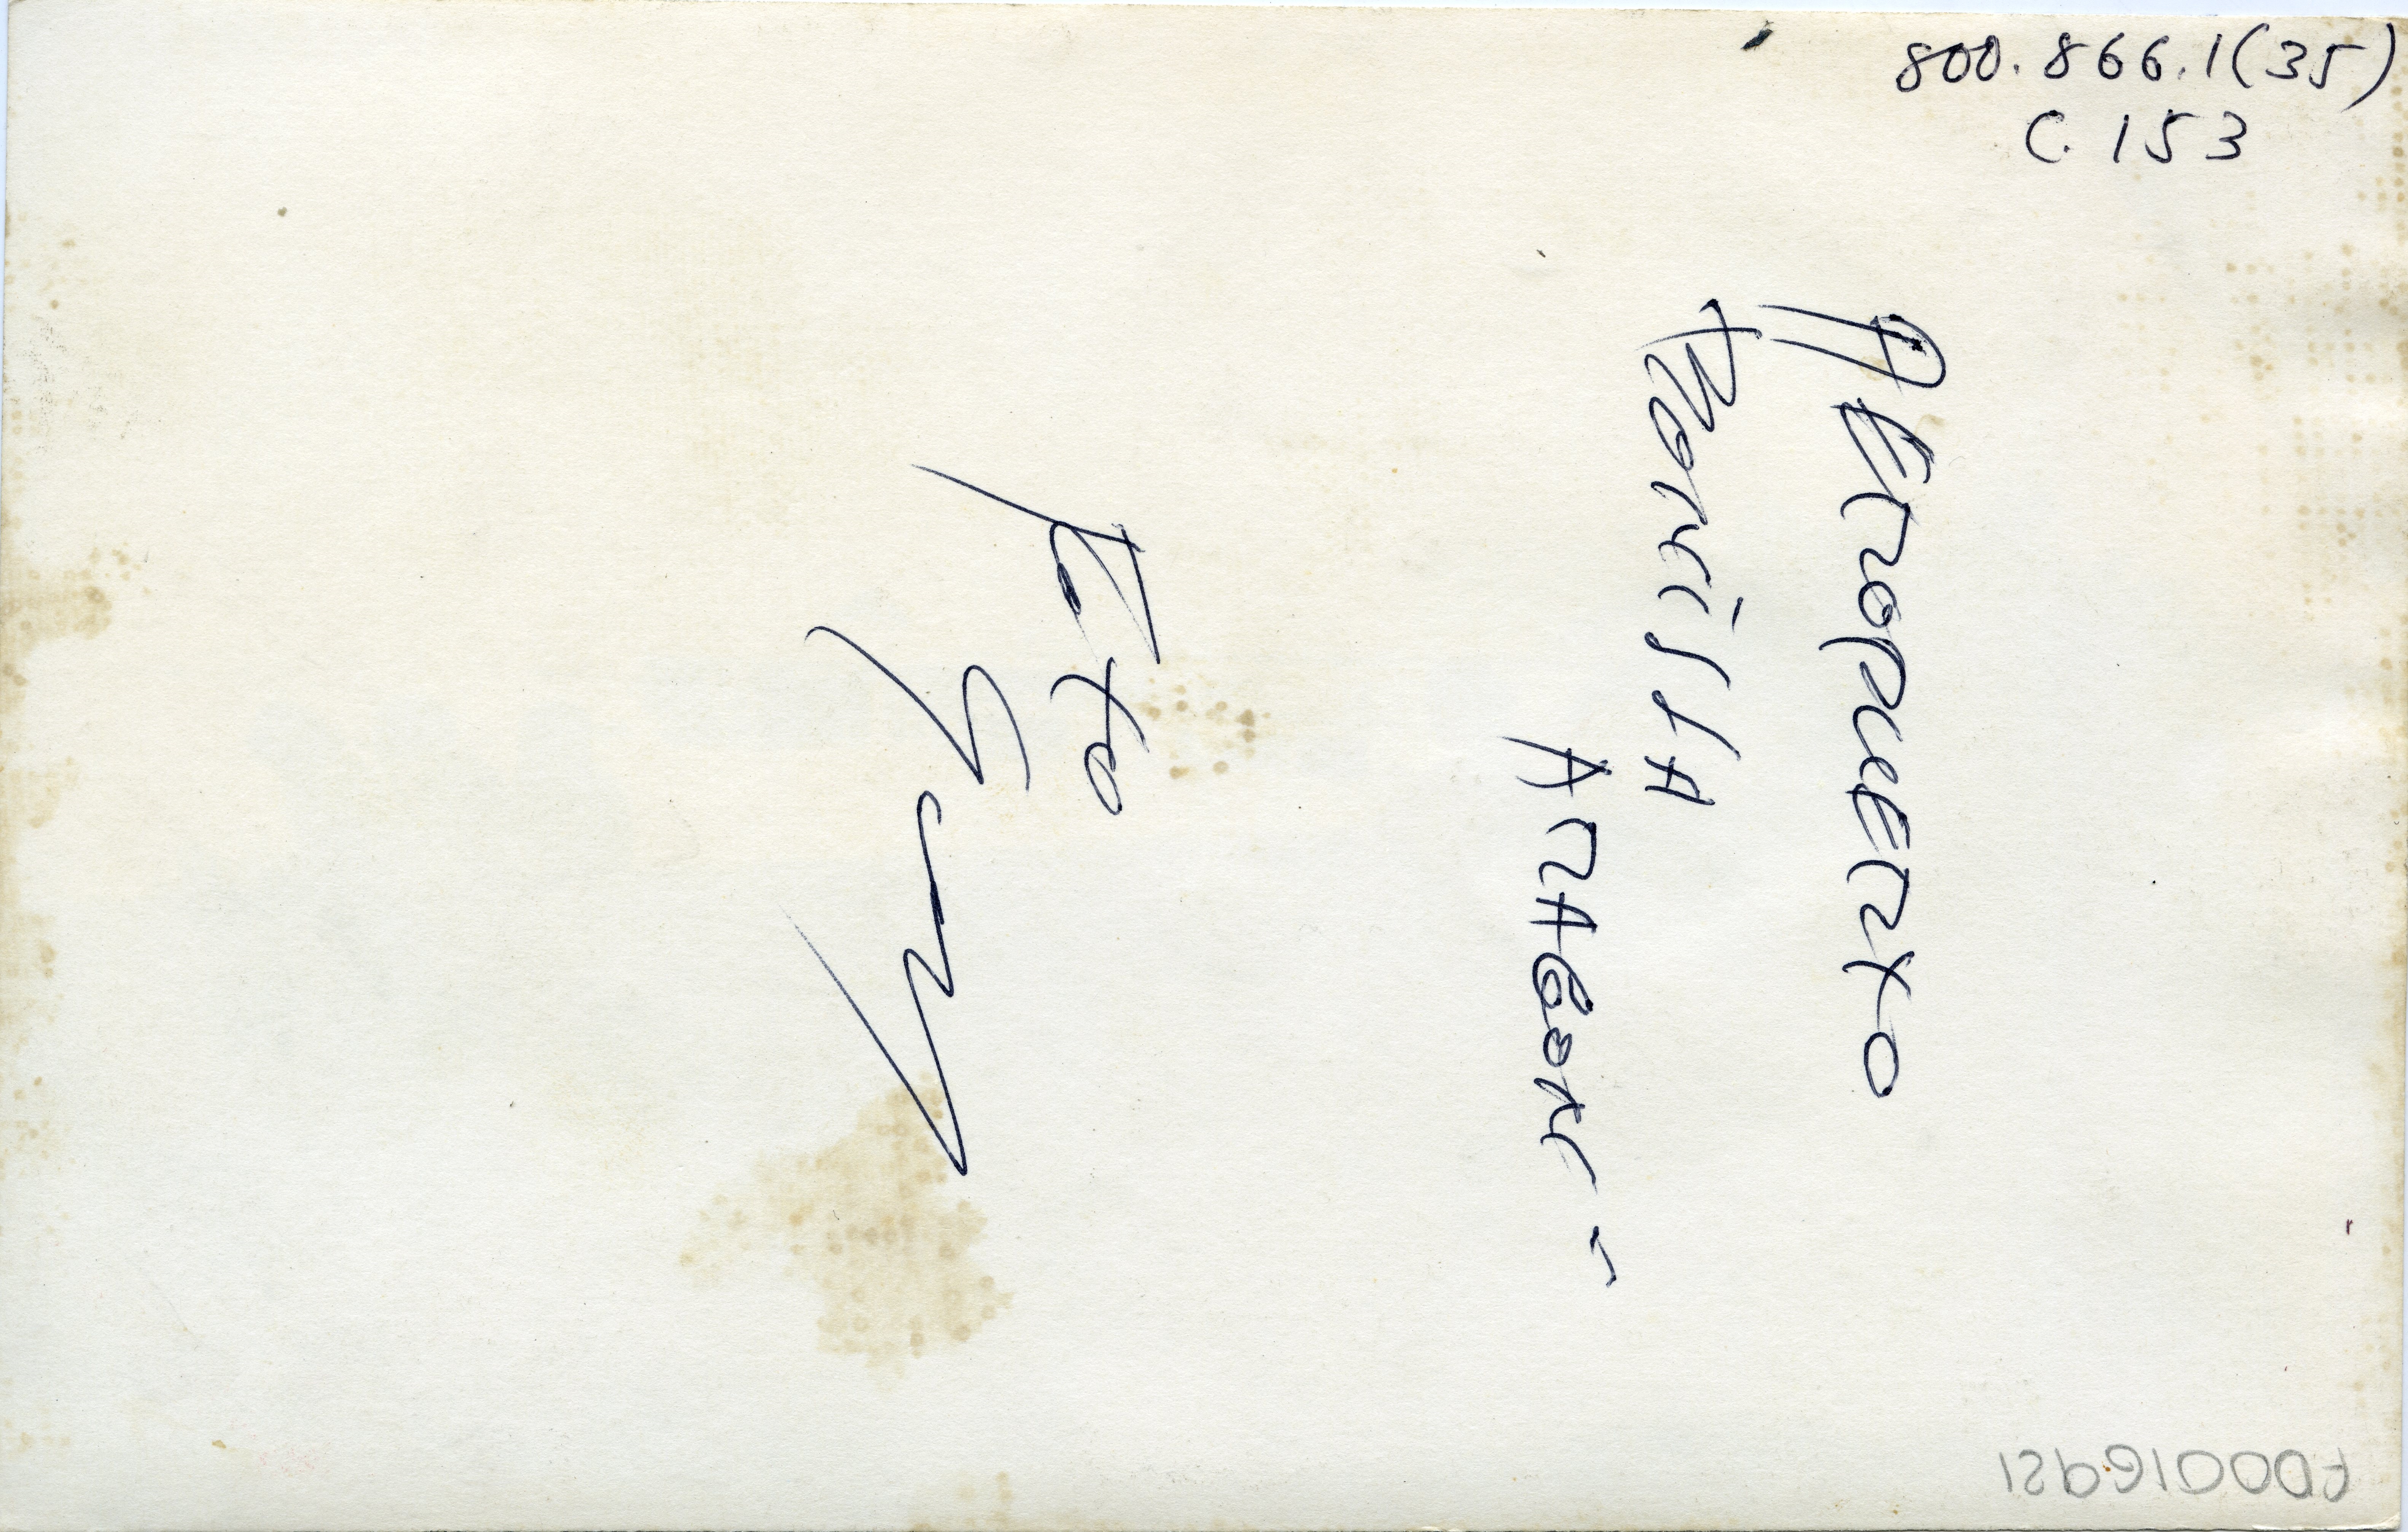 800.866.1(35)
C. 153
AEROPUERTO
BoniLLA
ARAGON -
Foto
F00016921